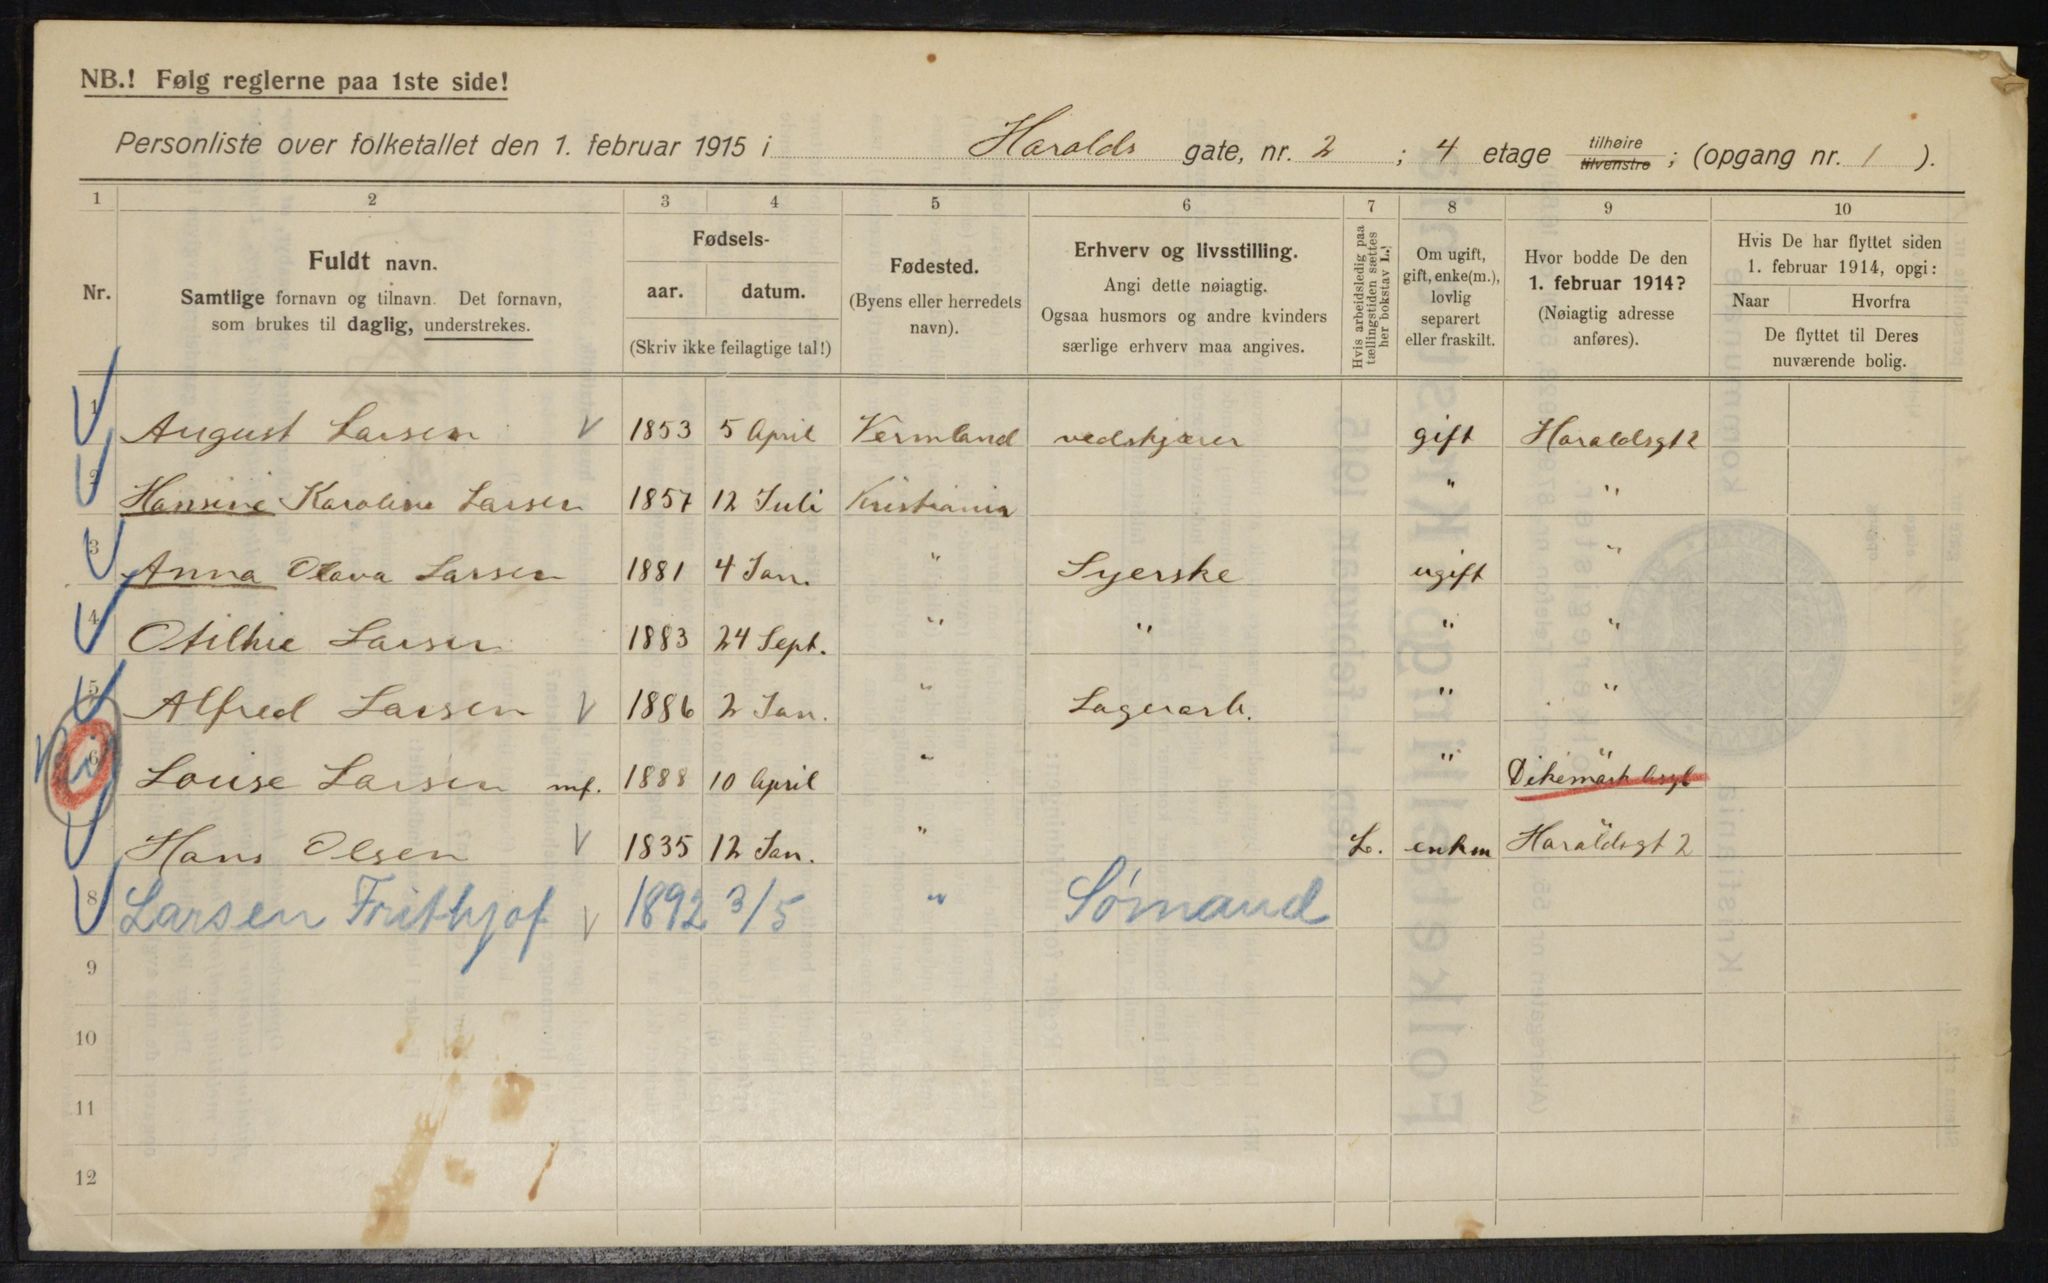 NB.! Følg reglerne paa 1ste side!
Personliste over folketallet den 1. februar 1915 i Haralds gate, nr. 2 ; 4 etage tilhøire tilvenstre ; (opgang nr. 1 ).
1 2 3 4 5 6 7 8 9 10
Nr.
Fuldt navn.
Samtlige fornavn og tilnavn. Det fornavn,
som brukes til daglig, understrekes.
Fødsels-
aar. datum.
(Skriv ikke feilagtige tal!)
Fødested.
(Byens eller herredets
navn).
Erhverv og livsstilling.
Angi dette nøiagtig.
Ogsaa husmors og andre kvinders
særlige erhverv maa angives.
Hvis arbeidsledig paa
tællingstiden sættes
her bokstav L.!
Om ugift,
gift, enke(m.),
lovlig
separert
eller fraskilt.
Hvor bodde De den
1. februar 1914?
(Nøiagtig adresse
anføres).
Hvis De har flyttet siden
1. februar 1914, opgi:
Naar Hvorfra
De flyttet til Deres
nuværende bolig.
1 August Larsen 1853 5 April Vermland vedskjærer gift Haraldsgt 2
2 Hansine Karoline Larsen 1857 12 Juli Kristiania " "
3 Anna Olava Larsen 1881 4 Jan. " Syerske ugift "
4 Otilhie Larsen 1883 24 Sept. " " " "
5 Alfred Larsen 1886 2 Jan. " Lagerarb. " "
6 Louise Larsen mf. 1888 10 April " " Dikemark Asyl
Hans Olsen 1835 12 Jan. " L. enkm Haraldsgt 2
8 Larsen Frithjof 1892 3/5 " Sømand
9
10
11
12